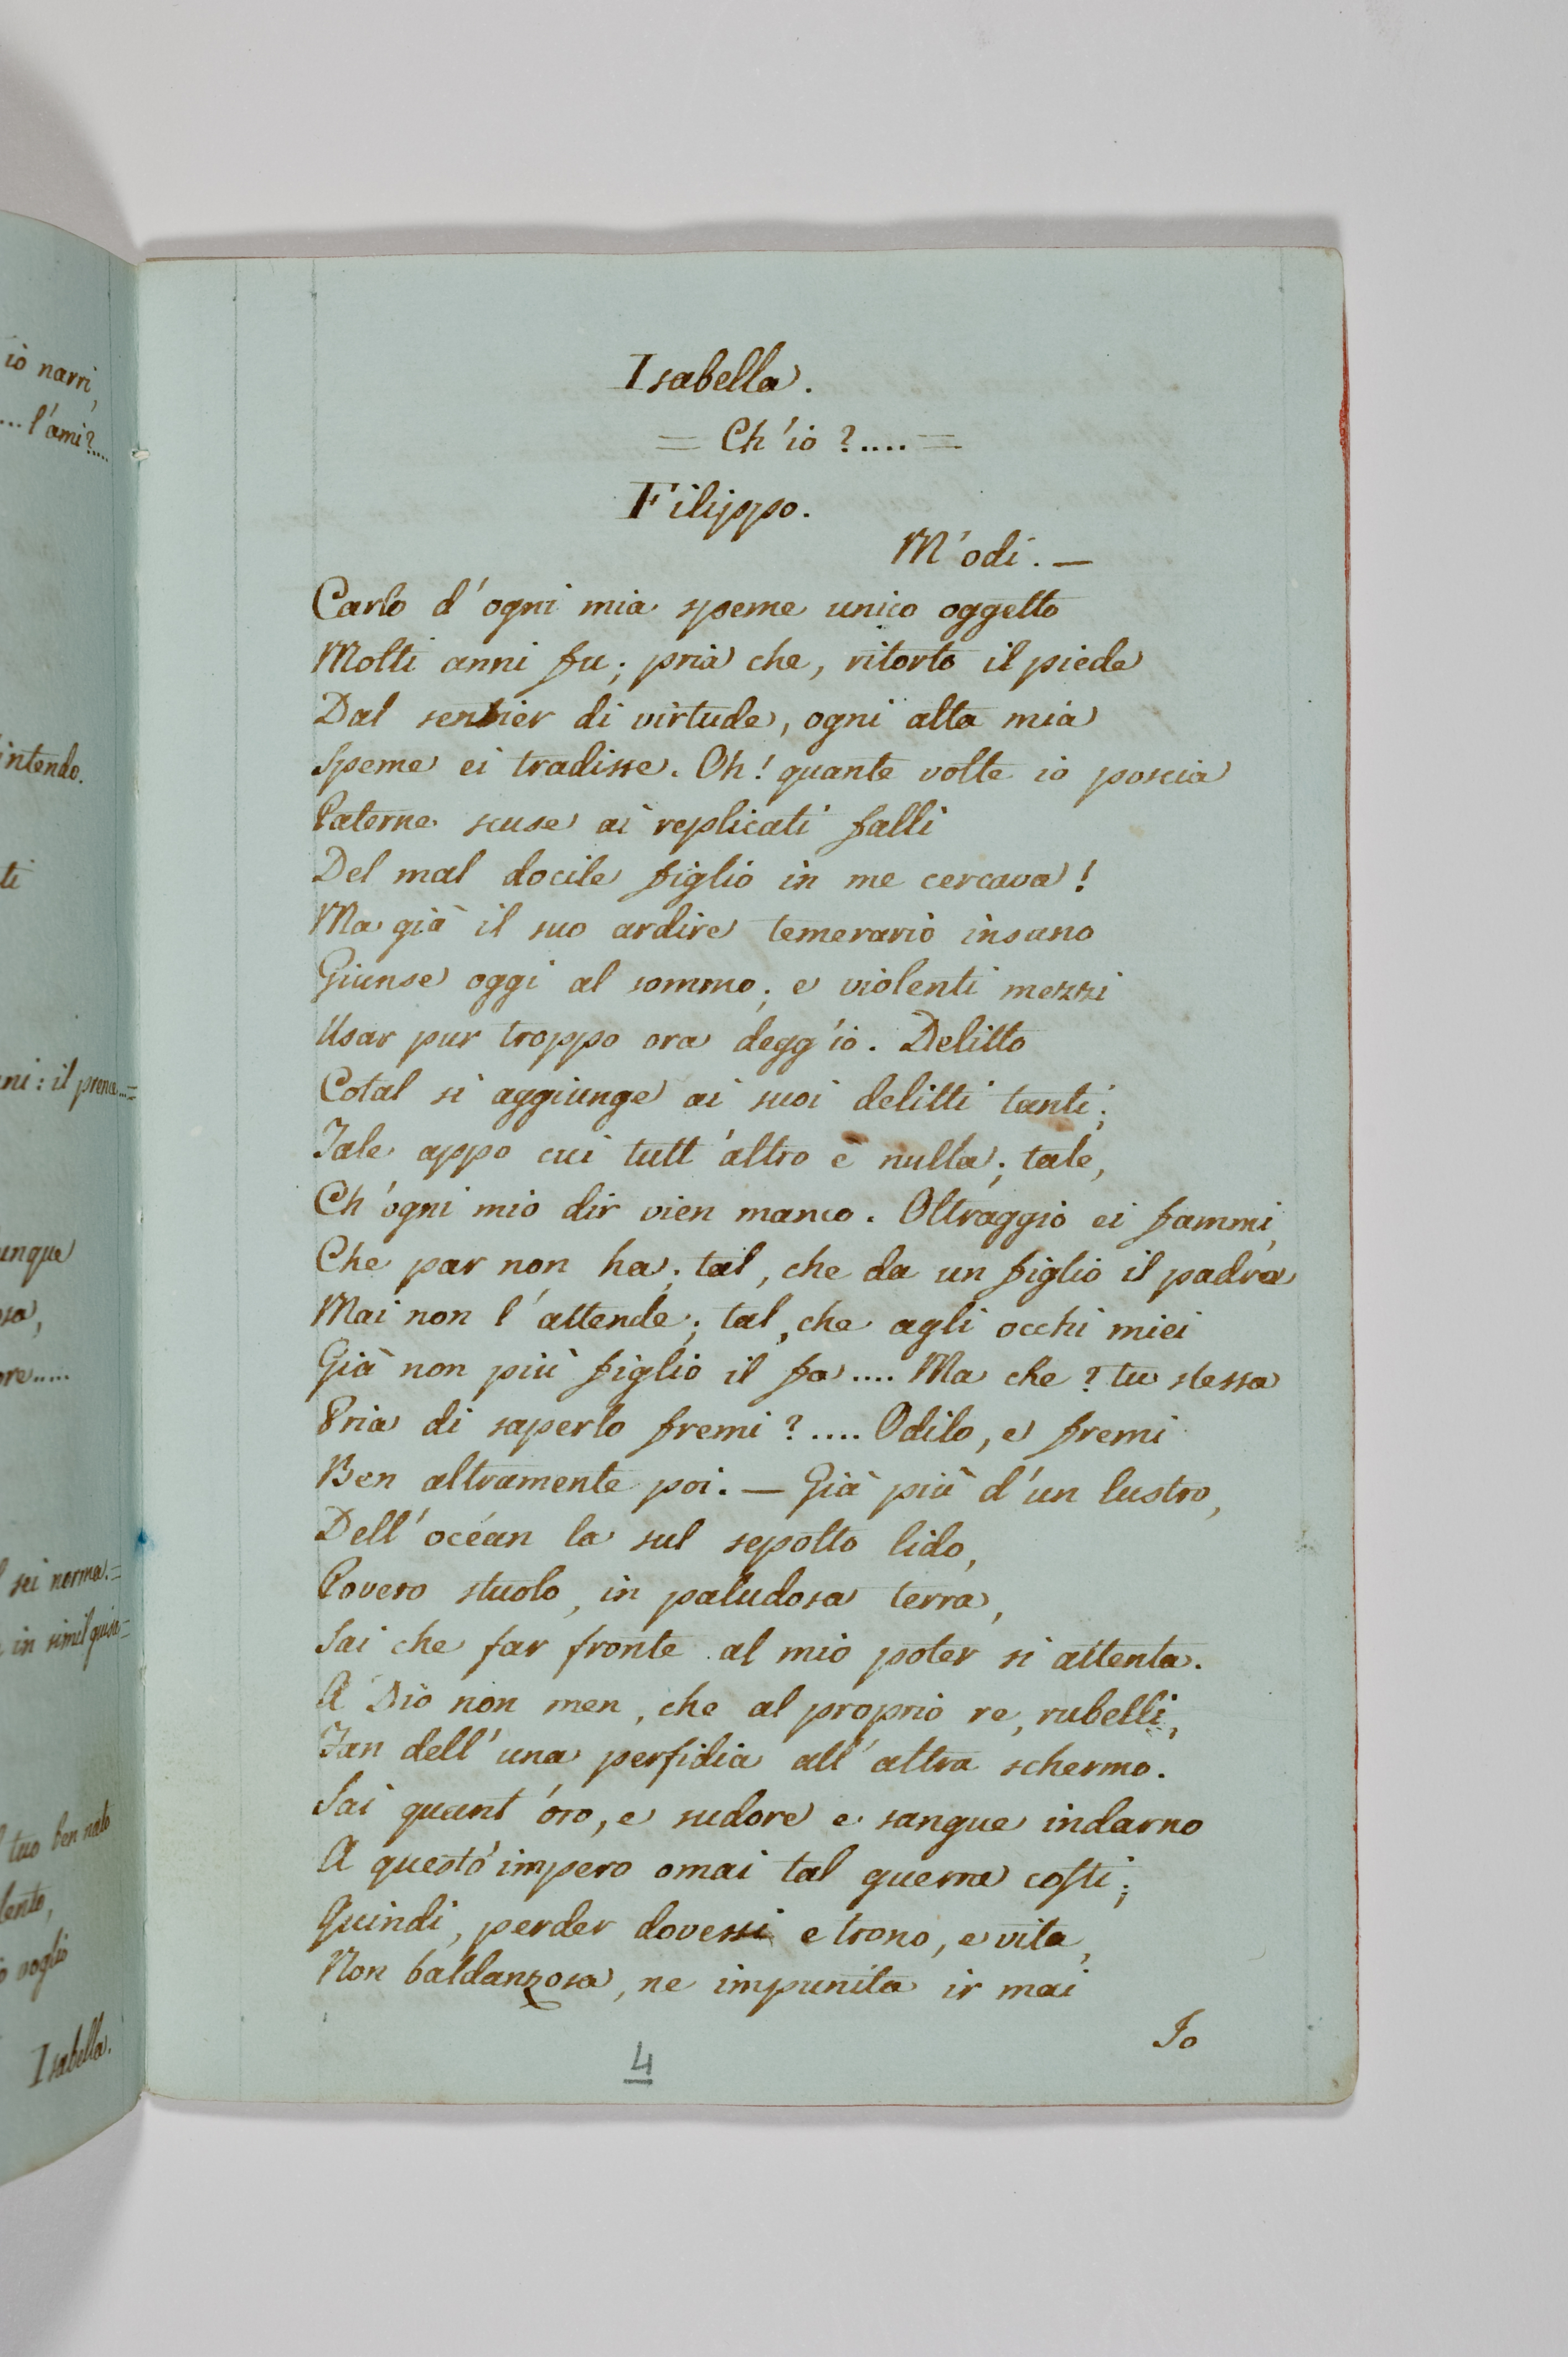 iò narri,
...l'ami?....
intendo.
ti
ni: il prence...=
unque
osa,
ore.....
l sei norma.=
in simil guisa=
l tuo ben nato
lento,
o voglio
Isabella.
Isabella.
= Ch'io ?.... =
Filippo.
M'odi. —
Carlo d'ogni mia speme unico oggetto
Molti anni fu; pria che, ritorto il piede
Dal sentier di virtude, ogni alta mia
Speme ei tradisse. Oh! quante volte io poscia
Paterne scuse ai replicati falli
Del mal docile figlio in me cercava!
Ma già il suo ardire temerario insano
Giunse oggi al sommo; e violenti mezzi
Usar pur troppo ora degg'io. Delitto
Cotal si aggiunge ai suoi delitti tanti;
Tale appo cui tutt'altro è nulla; tale,
Ch'ogni mio dir vien manco. Oltraggio ei fammi,
Che par non ha; tal, che da un figlio il padre
Mai non l'attende; tal, che agli occhi miei
Già non più figlio il fa.... Ma che? tu stessa
Pria di saperlo fremi?.... Odilo, e fremi
Ben altramente poi. — Già più d'un lustro,
Dell'océan la sul sepolto lido,
Povero stuolo, in paludosa terra,
Sai che far fronte al mio poter si attenta.
A Dio non men, che al proprio re, rubelli,
Fan dell'una perfidia all'altra schermo.
Sai quant'oro, e sudore e sangue indarno
A questo impero omai tal guerra costi;
Quindi, perder dovessi e trono, e vita,
Non baldanzosa, ne impunita ir mai
Io
4